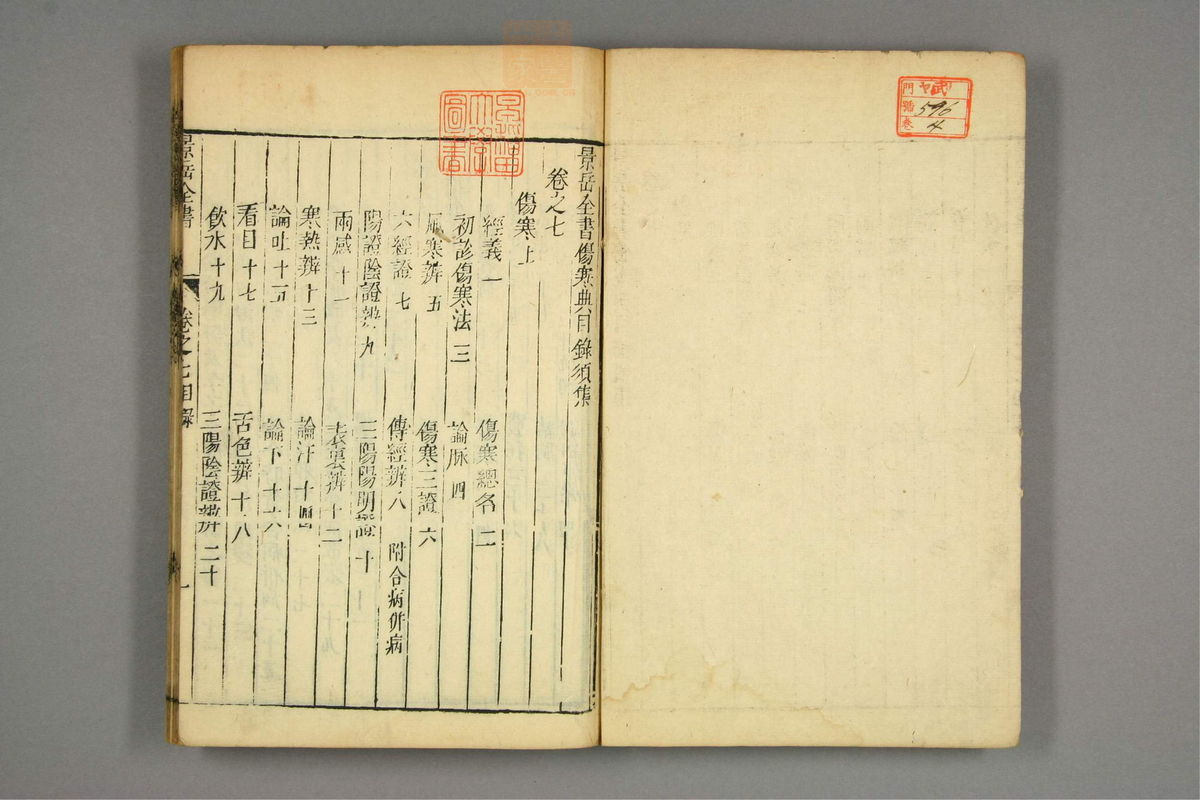 門 號 卷
596
4
景岳全書傷寒典目錄須集
卷之七
傷寒上
經義 一 傷寒總名 二
初診傷寒法 三 論脉 四
風寒辨 五 傷寒三證 六
六經證 七 傳經辨 八 附合病併病
陽證陰證辨 九 三陽陽明證 十
兩感 十一 表裏辨 十二
寒熱辨 十三 論汗 十四
論吐 十五 論下 十六
看目 十七 舌色辨 十八
飲水 十九 三陽陰證辨 二十
景岳全書 卷之七目錄 一